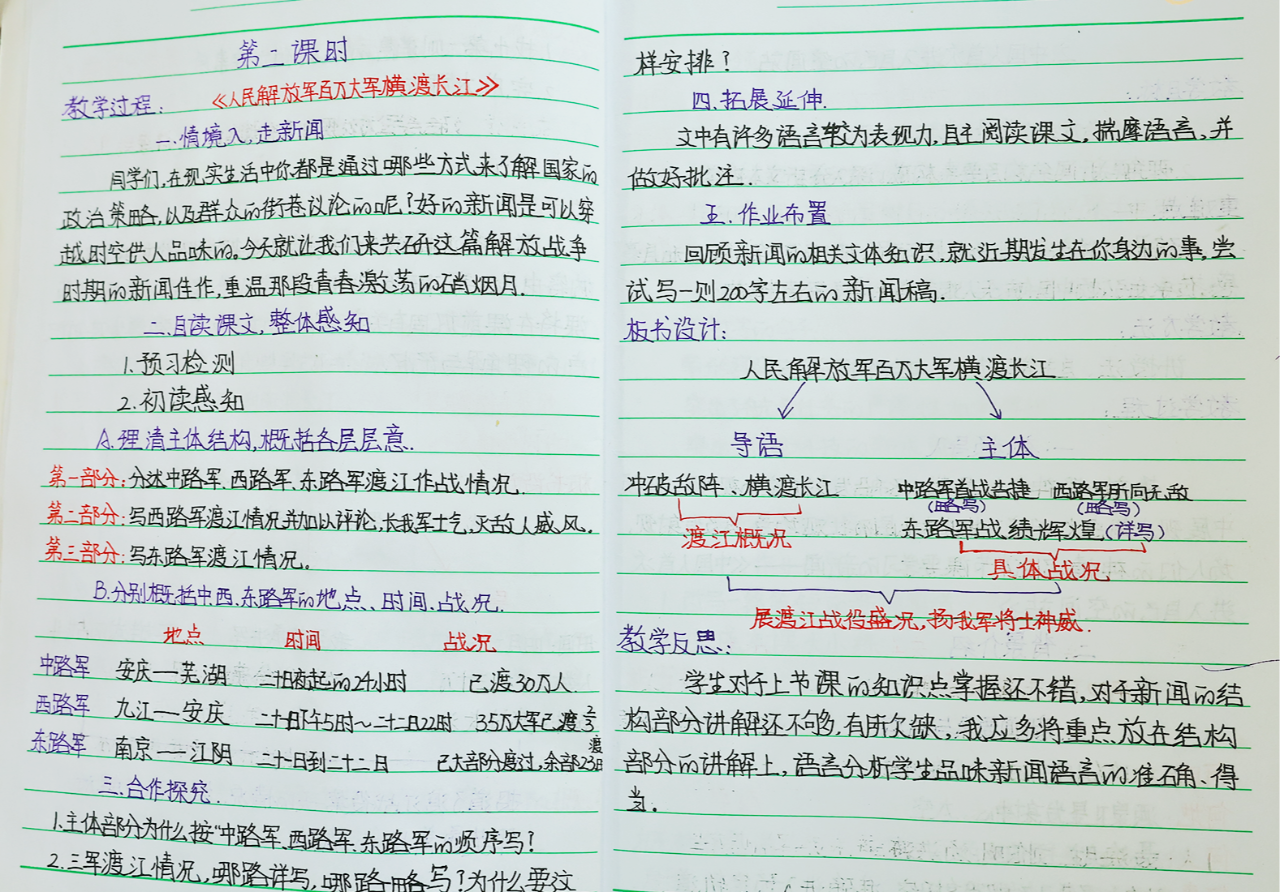 第二课时
教学过程: 《人民解放军百万大军横渡长江》
一.情境入,走新闻
同学们,在现实生活中你都是通过哪些方式来了解国家的
政治策略,以及群众的街巷议论的呢?好的新闻是可以穿
越时空供人品味的。今天就让我们来共研这篇解放战争
时期的新闻佳作,重温那段青春激荡的硝烟月.
二.自读课文,整体感知
1.预习检测
2.初读感知
A.理清主体结构,概括各层层意.
第一部分:分述中路军、西路军、东路军渡江作战情况.
第二部分:写西路军渡江情况并加以评论,长我军士气,灭敌人威风。
第三部分:写东路军渡江情况。
B.分别概括中.西.东路军的地点、时间、战况.
地点 时间 战况
中路军 安庆—芜湖 二十日夜起的24小时 已渡30万人.
西路军 九江—安庆 二十一日下午5时～二十二日22时 35万大军已渡2/3
东路军 南京—江阴 二十一日到二十二日 已大部分度过,余部23日渡
三.合作探究.
1.主体部分为什么按"中路军、西路军、东路军的顺序写?
2.三军渡江情况,哪路详写,哪路略写?为什么要这
样安排?
四.拓展延伸.
文中有许多语言较为表现力,自主阅读课文,揣摩语言,并
做好批注.
五.作业布置
回顾新闻的相关文体知识,就近期发生在你身边的事,尝
试写一则200字左右的新闻稿.
板书设计:
人民解放军百万大军横渡长江
导语 主体
冲破敌阵、横渡长江 中路军首战告捷 西路军所向无敌
(略写) (略写)
渡江概况 东路军战绩辉煌(详写)
具体战况
展渡江战役盛况,扬我军将士神威.
教学反思:
学生对于上节课的知识点掌握还不错,对于新闻的结
构部分讲解还不够,有所欠缺,我应多将重点放在结构
部分的讲解上,语言分析学生品味新闻语言的准确、得
当.